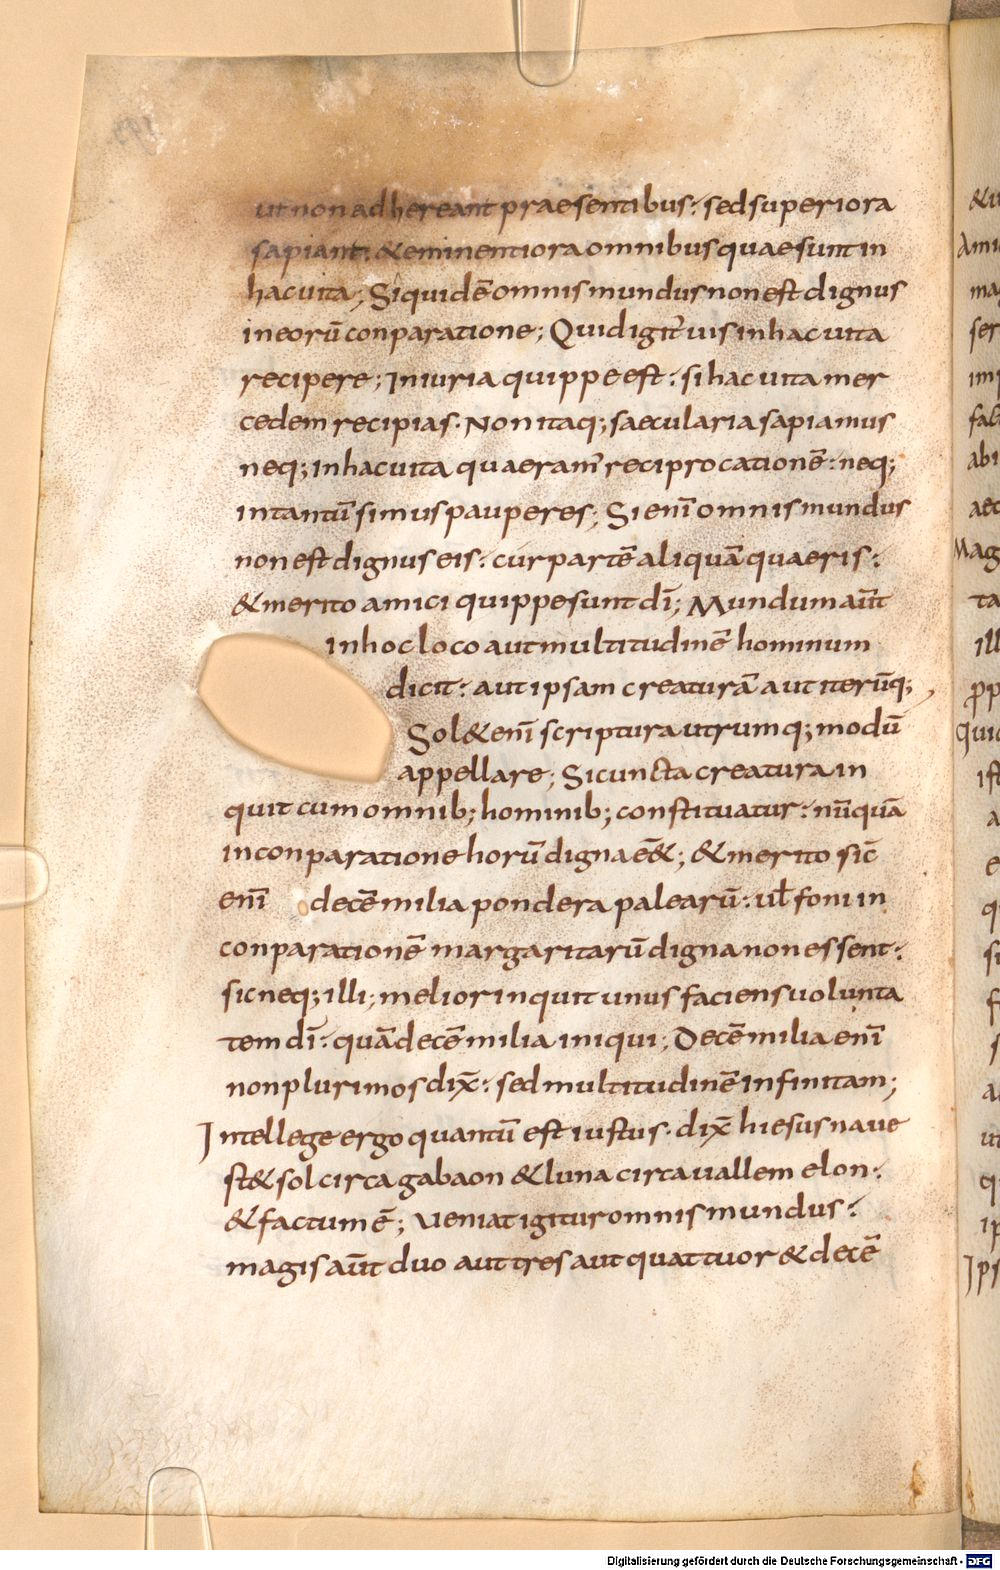 ut non adhereant praesentibus: sed superiora
sapiant: & eminentiora omnibus quae sunt in
hac uita; Siquidē omnis mundus non est dignus
in eorū conparatione; Quid igit᷑ uis in hac uita
recipere; Iniuria quippe est: si hac uita mer
cedem recipias. Non itaq; saecularia sapiamus
neq; in hac uita quaeram᷑ reciprocationē: neq;
in tantū simus pauperes; Si eni̅ omnis mundus
non est dignus eis: cur partē aliquā quaeris:
& merito amici quippe sunt di̅; Mundum aūt
in hoc loco aut multitudinē hominum
dicit: aut ipsam creaturā aut iterūq;
Sol& eni̅ scriptura utrumq; modū
appellare; Si cuncta creatura in
quit cum omnib; hominib; constituatur: nūquā
in conparatione horū digna ē&; & merito sic̅
eni̅ decē milia pondera palearū: ul̅ foni in
conparationē margaritarū digna non essent:
sic neq; illi; melior inquit unus faciens uolunta
tem di̅: quā decē milia iniqui; Decē milia eni̅
non plurimos dix̅: sed multitudinē infinitam;
Intellege ergo quantū est iustus. dix̅ hiesus naue
st& sol circa gabaon & luna circa uallem elon:
& factum ē; Ueniat igitur omnis mundus:
magis aūt duo aut tres aut quattuor & decē
&u
Ami
ma
ser
imp
fal
abi
aet
Mag
ta
ill
Digitalisierung gefördert durch die Deutsche Forschungsgemeinschaft - DFG